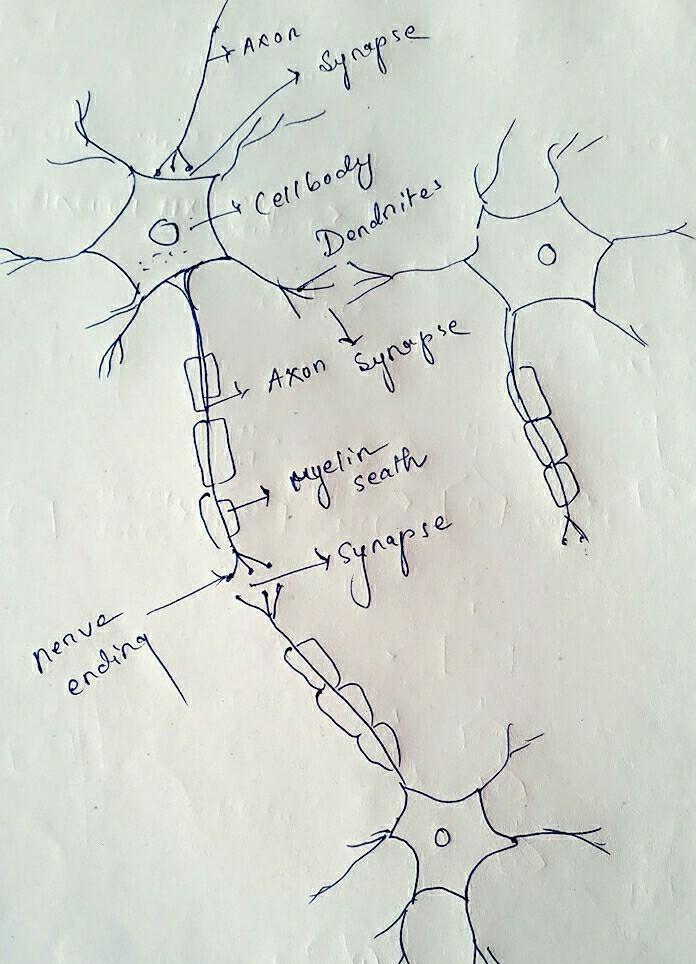 Axon
Synapse
Cellbody
Dendnites
Axon
Synapse
myelin
seath
Synapse
nerve
ending